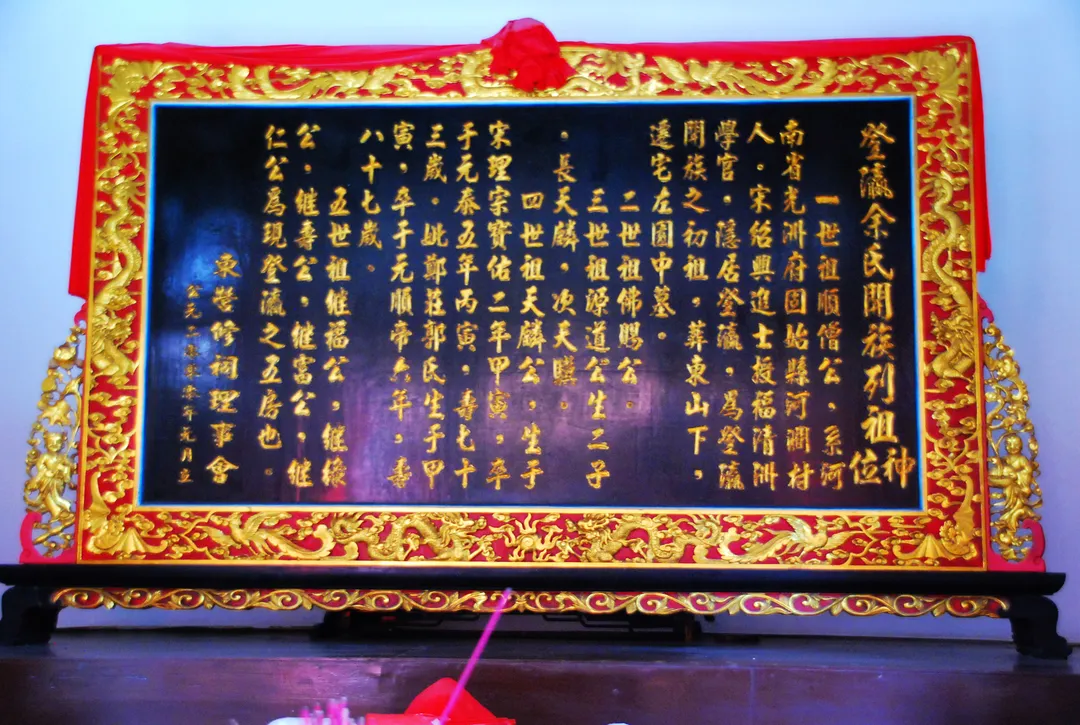 登瀛余氏開族列祖神位
一世祖順僧公，系河
南省光洲府固始縣河澗村
人。宋紹興進士授福清洲
學官，隱居登瀛，爲登瀛
開族之初祖，葬東山下，
邊宅左園中墓。
二世祖佛賜公。
三世祖源道公生二子
。長天麟，次天驥。
四世祖天麟公，生于
宋理宗寶佑二年甲寅，卒
于元泰五年丙寅，壽七十
三歲。妣鄭莊郭氏生于甲
寅，卒于元順帝六年，壽
八十七歲。
五世祖继福公，继缘
公，继壽公，继富公，继
仁公爲現登瀛之五房也。
東營修祠理事會
公元二零零零年元月立